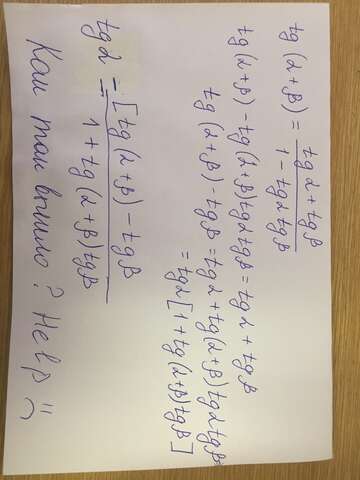 tg(α+β) = (tgα + tgβ)/(1 - tgαtgβ)
tg(α+β) - tg(α+β)tgαtgβ = tgα + tgβ
tg(α+β) - tgβ = tgα + tg(α+β)tgαtgβ =
= tgα[1 + tg(α+β)tgβ]
tgα = [tg(α+β) - tgβ/1 + tg(α+β)tgβ
Как так вышло? Help